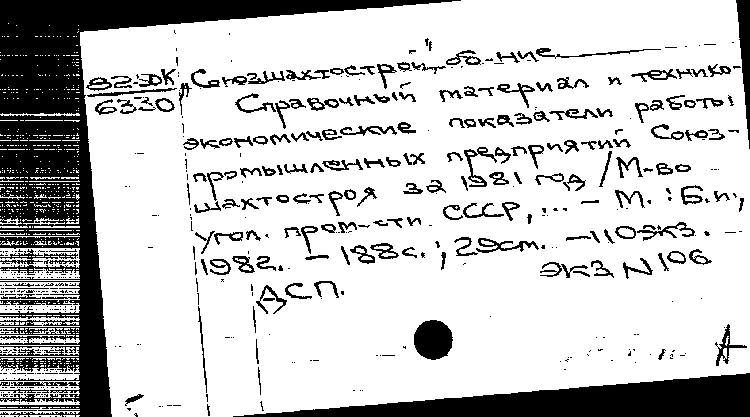 82-ДК
6330
„Союзшахтострой", об-ние.
Справочный материал и технико-
экономические показатели работы
промышленных предприятий Союз-
шахтостроя за 1981 год / М-во
угол. пром-сти СССР, ... – М. : Б.и.,
1982. – 188с. ; 29см. – 110экз.
экз N 106
ДСП.
А